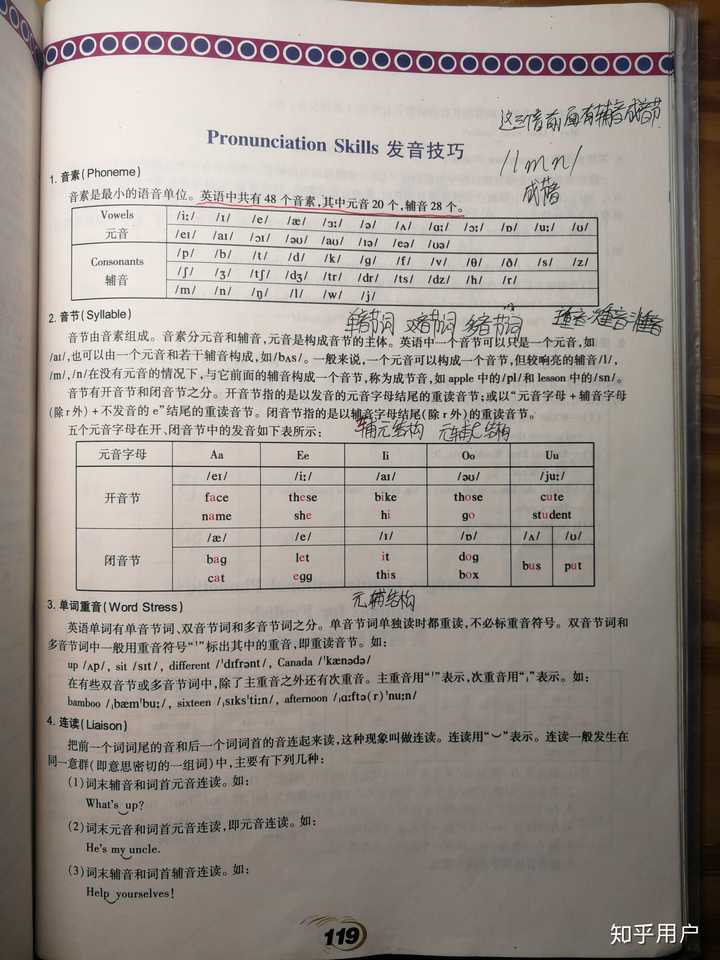 这三个音前面有辅音成音节
/l m n/
成节音
Pronunciation Skills 发音技巧
1. 音素(Phoneme)
音素是最小的语音单位。英语中共有 48 个音素,其中元音 20 个,辅音 28 个。
Vowels 元音 /iː/ /ɪ/ /e/ /æ/ /ɜː/ /ə/ /ʌ/ /ɑː/ /ɔː/ /ɒ/ /uː/ /ʊ/
/eɪ/ /aɪ/ /ɔɪ/ /əʊ/ /aʊ/ /ɪə/ /eə/ /ʊə/
Consonants 辅音 /p/ /b/ /t/ /d/ /k/ /g/ /f/ /v/ /θ/ /ð/ /s/ /z/
/ʃ/ /ʒ/ /tʃ/ /dʒ/ /tr/ /dr/ /ts/ /dz/ /h/ /r/
/m/ /n/ /ŋ/ /l/ /w/ /j/
2. 音节(Syllable)
单音节词 双音节词 多音节词 重音 次重音
音节由音素组成。音素分元音和辅音,元音是构成音节的主体。英语中一个音节可以只是一个元音,如
/aɪ/,也可以由一个元音和若干辅音构成,如/bʌs/。一般来说,一个元音可以构成一个音节,但较响亮的辅音/l/,
/m/,/n/在没有元音的情况下,与它前面的辅音构成一个音节,称为成节音,如 apple 中的/pl/和 lesson 中的/sn/。
音节有开音节和闭音节之分。开音节指的是以发音的元音字母结尾的重读音节;或以“元音字母 + 辅音字母
(除 r 外) + 不发音的 e”结尾的重读音节。闭音节指的是以辅音字母结尾(除 r 外)的重读音节。
五个元音字母在开、闭音节中的发音如下表所示:
辅元结构 元辅e结构
元音字母 Aa Ee Ii Oo Uu
/eɪ/ /iː/ /aɪ/ /əʊ/ /juː/
开音节 face these bike those cute
name she hi go student
/æ/ /e/ /ɪ/ /ɒ/ /ʌ/ /ʊ/
闭音节 bag let it dog bus put
cat egg this box
元辅结构
3. 单词重音(Word Stress)
英语单词有单音节词、双音节词和多音节词之分。单音节词单独读时都重读,不必标重音符号。双音节词和
多音节词中一般用重音符号“ˈ”标出其中的重音,即重读音节。如:
up /ʌp/, sit /sɪt/, different /ˈdɪfrənt/, Canada /ˈkænədə/
在有些双音节或多音节词中,除了主重音之外还有次重音。主重音用“ˈ”表示,次重音用“ˌ”表示。如:
bamboo /ˌbæmˈbuː/, sixteen /ˌsɪksˈtiːn/, afternoon /ˌɑːftə(r)ˈnuːn/
4. 连读(Liaison)
把前一个词词尾的音和后一个词词首的音连起来读,这种现象叫做连读。连读用“‿”表示。连读一般发生在
同一意群(即意思密切的一组词)中,主要有下列几种:
(1)词末辅音和词首元音连读。如:
What's‿up?
(2)词末元音和词首元音连读,即元音连读。如:
He's my‿uncle.
(3)词末辅音和词首辅音连读。如:
Help‿yourselves!
119
知乎用户